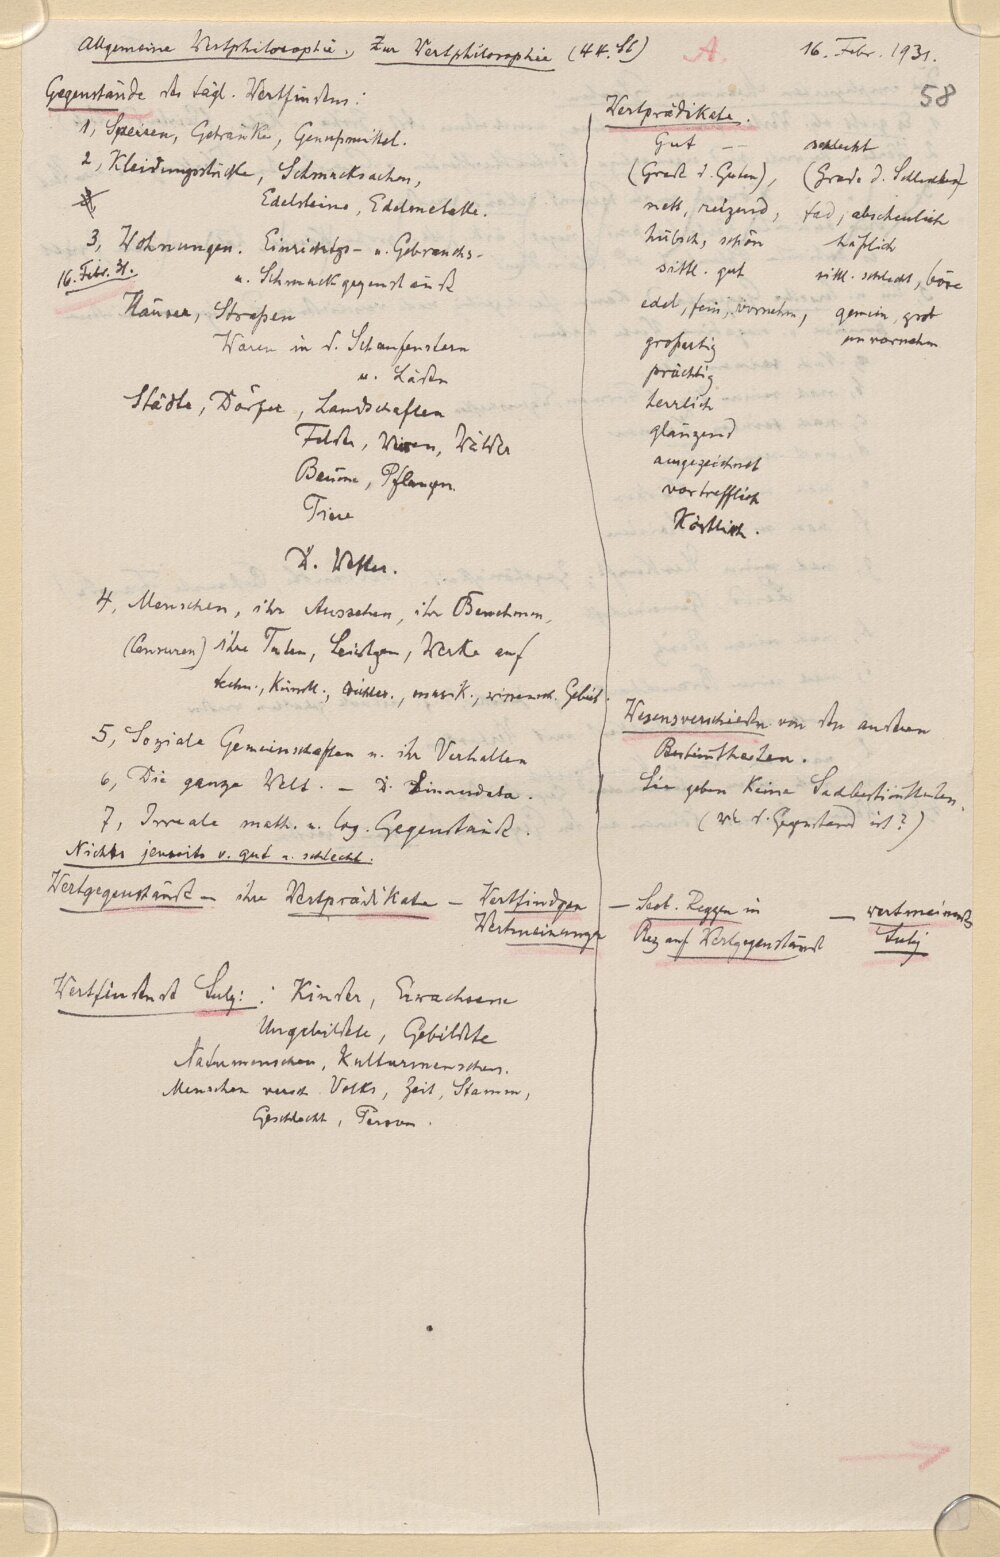 Allgemeine Wertphilosophie. Zur Wertphilosophie (4 St) A. 16. Febr. 1931.
58
Gegenstände des tägl. Wertfindens:
1, Speisen, Getränke, Genußmittel.
2, Kleidungsstücke, Schmucksachen,
Edelsteine, Edelmetalle.
3, Wohnungen. Einrichtgs- u. Gebrauchs-
16. Febr. 31.
u. Schmuckgegenstände
Häuser, Straßen
Waren in d. Schaufenstern
u. Läden
Städte, Dörfer, Landschaften
Felder, Wiesen, Wälder
Bäume, Pflanzen.
Tiere
D. Wetter.
4, Menschen, ihr Aussehen, ihr Benehmen,
(Censuren) ihre Taten, Leistgen, Werke auf
techn., künstl., dichter., musik., wissensch. Gebiet.
5, Soziale Gemeinschaften u. ihr Verhalten
6, Die ganze Welt. – D. Sinnendata.
7, Irreale math. u. log. Gegenstände.
Nichts jenseits v. gut u. schlecht.
Wertgegenstände – ihre Wertprädikate – Wertfindgen
Wertmeinungen
Wertfindende Subj: : Kinder, Erwachsene
Ungebildete, Gebildete
Naturmenschen, Kulturmenschen.
Menschen versch. Volks, Zeit, Stamm,
Geschlecht, Person.
Wertprädikate.
Gut — schlecht
(Grade d. Guten), (Grade d. Schlechten)
nett, reizend, fad, abscheulich
hübsch, schön häßlich
sittl. gut sittl. schlecht, böse
edel, fein, vornehm, gemein, grob
großartig unvornehm
prächtig
herrlich
glänzend
ausgezeichnet
vortrefflich
Köstlich.
Wesensverschieden von den anderen
Bestimtheiten.
Sie geben keine Sachbestimtheiten.
(wie d. Gegenstand ist?)
– Seel. Reggen in – wertmeinende
Bez auf Wertgegenstände Subj